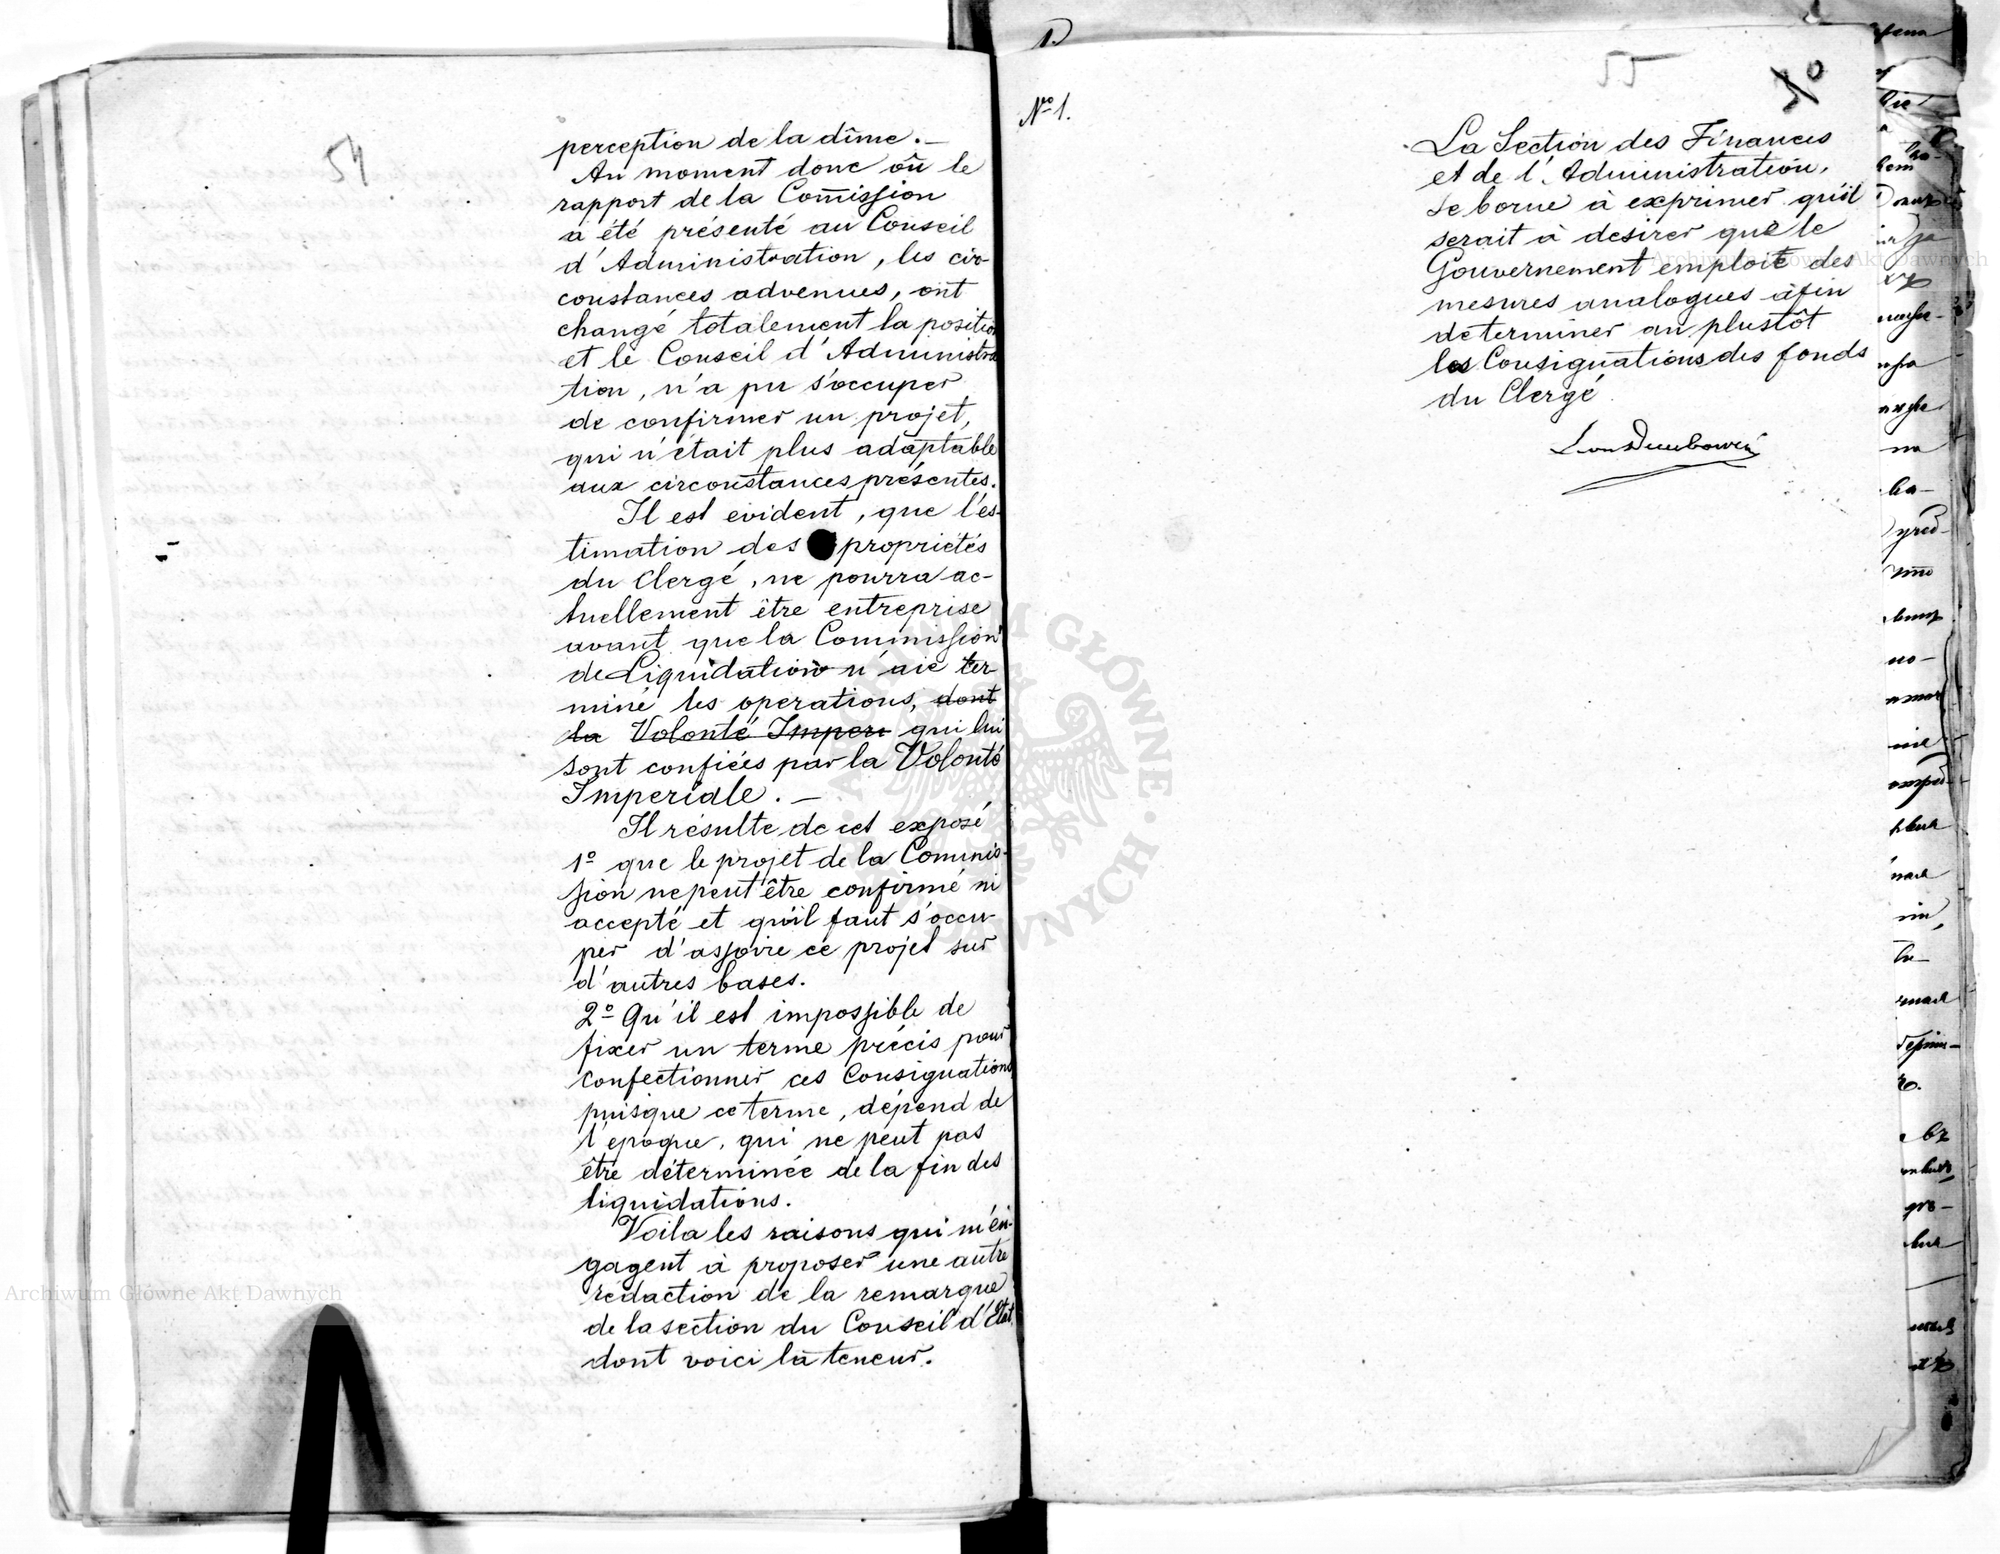 54
perception de la dîme. —
Au moment donc où le
rapport de la Com̄ission
a été présenté au Conseil
d'Administration, les cir-
constances advenues, ont
changé totalement la position
et le Conseil d'Administra
tion, n'a pu s'occuper
de confirmer un projet,
qui n'était plus adaptable
aux circonstances présentes.
Il est evident, que l'es-
timation des propriétés
du Clergé, ne pourra ac-
tuellement être entreprise
avant que la Commission
de Liquidation n'aie ter-
miné les operations, dont
la Volonté Imper: qui lui
sont confiées par la Volonté
Imperiale. —
Il résulte de cet exposé
1º que le projet de la Commis-
sion ne peut être confirmé ni
accepté et qu'il faut s'occu-
per d'assoire ce projet sur
d'autres bases.
2º Qu'il est impossible de
fixer un terme précis pour
confectionner ces Consignations,
puisque ce terme, dépend de
l'epoque, qui ne peut pas
être déterminée de la fin des
liquidations.
Voila les raisons qui m'en-
gagent à proposer une autre
rédaction de la remarque
de la section du Conseil d'Etat,
dont voici la teneur.
1.)
Nro 1.
55
La Section des Finances
et de l'Administration,
se borne à exprimer qu'il
serait à desirer que le
Gouvernement emploie des
mesures analogues àfin
determiner au plustôt
les Consignations des fonds
du Clergé.
Leon Dembowski
Archiwum Główne Akt Dawnych
Archiwum Główne Akt Dawnych